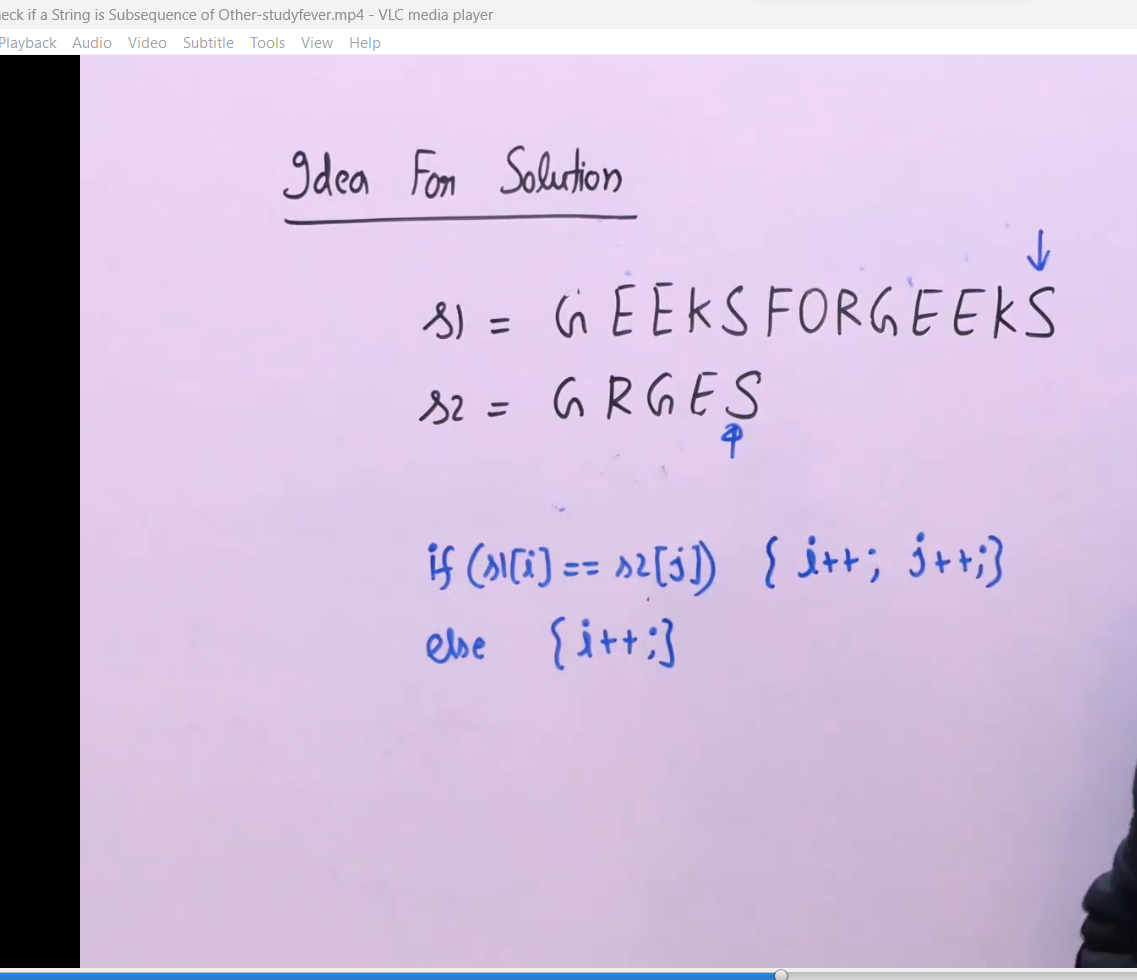 eck if a String is Subsequence of Other-studyfever.mp4 - VLC media player
Playback Audio Video Subtitle Tools View Help
Idea For Solution
s1 = GEEKSFORGEEKS
s2 = GRGES
if (s1[i] == s2[j]) { i++; j++;}
else { i++;}